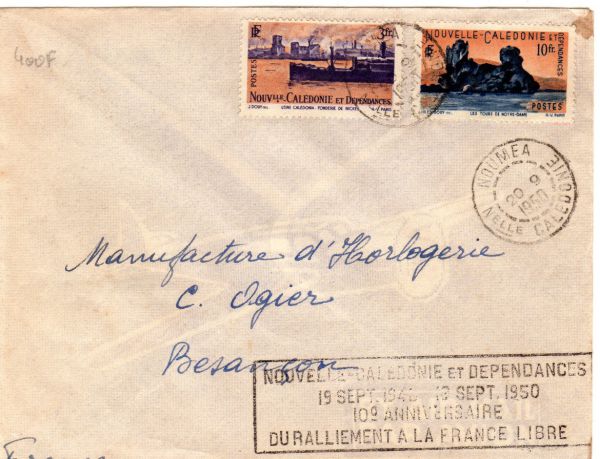 400F
3fr.
RF
POSTES
NOUVLLE-CALÉDONIE ET DÉPENDANCES
USINE CALEDONIA - FONDERIE DE NICKEL
NOUVELLE-CALÉDONIE ET DÉPENDANCES
RF
10fr.
POSTES
LES TOURS DE NOTRE-DAME
NOUMEA
20 9
1950
NELLE CALEDONIE
Manufacture d'Horlogerie
C. Ogier
Besançon
NOUVELLE-CALEDONIE ET DEPENDANCES
19 SEPT. 1940 - 19 SEPT. 1950
10e ANNIVERSAIRE
DU RALLIEMENT A LA FRANCE LIBRE
France